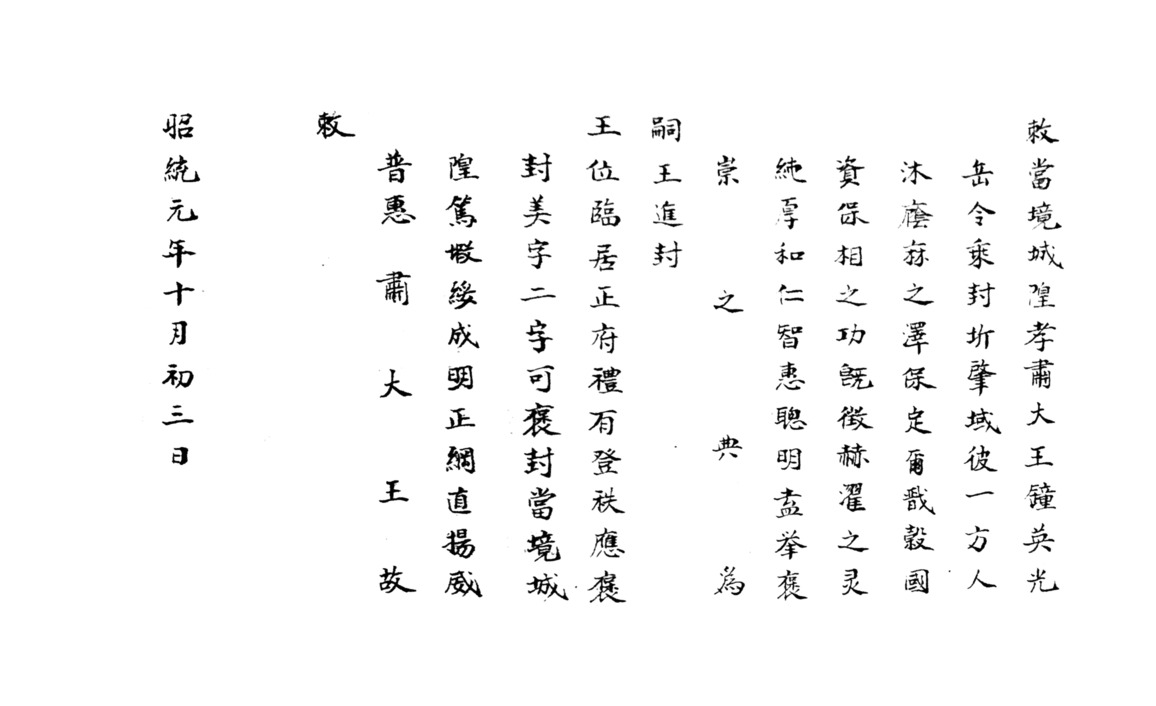 敕當境城隍孝肅大王鐘英光
岳令乘封圻肇域彼一方人
沐廕庥之澤保定爾戩穀國
資保相之功旣徵赫濯之灵
純厚和仁智惠聰明盍举褒
崇之典為
嗣王進封
王位臨居正府禮有登秩應褒
封美字二字可褒封當境城
隍篤嘏綏成明正綱直揚威
普惠肅大王故
敕
昭統元年十月初三日